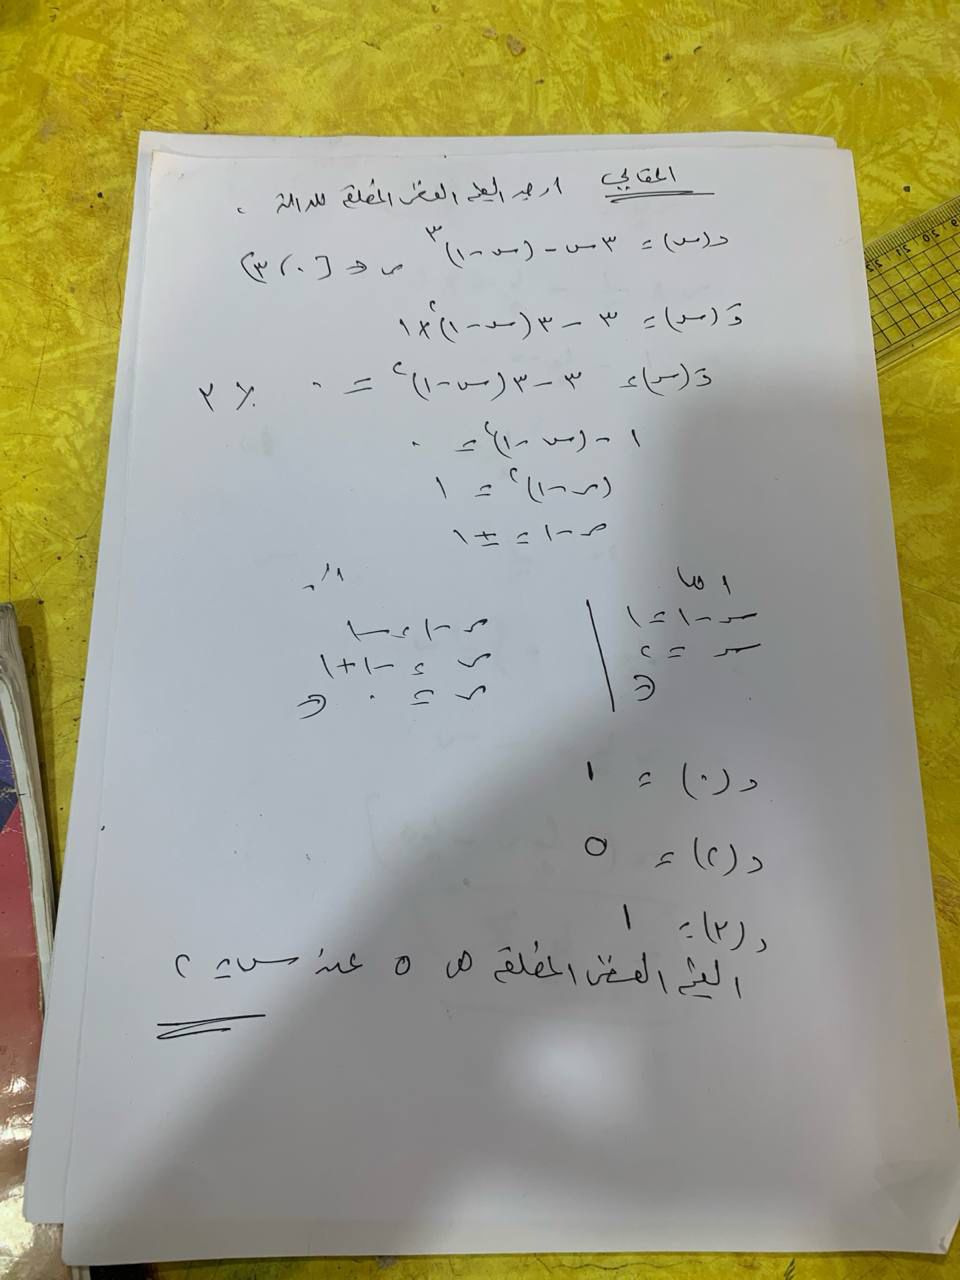 المقالي اوجد القيم القصوى المطلقة للدالة .
د(س) = ٣س - (س-١)^٣ س ∈ [٠،٣]
دَ(س) = ٣ - ٣(س-١)^٢ × ١
دَ(س) = ٣ - ٣(س-١)^٢ = ٠ ٪ ٣
١ - (س-١)^٢ = ٠
(س-١)^٢ = ١
س-١ = ±١
اما
او
س-١=١
س-١=-١
س = ٢
س = -١+١
س = ٠
د(٠) = ١
د(٢) = ٥
د(٣) = ١
القيم القصوى المطلقة هي ٥ عند س = ٢
20 21 22